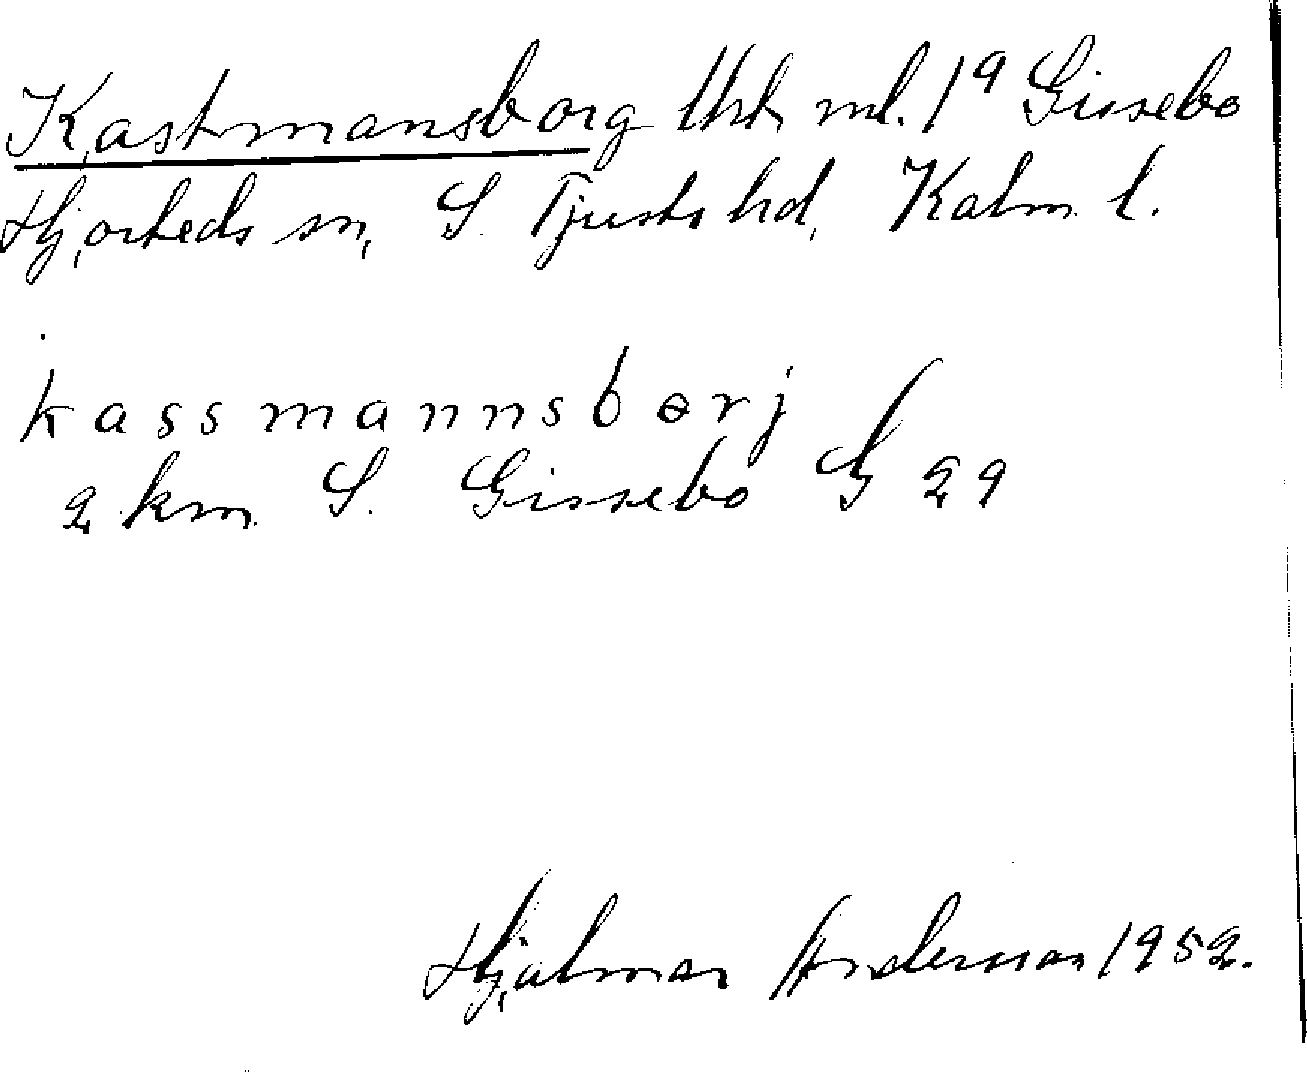 Kastmansborg lht ml. 1a Gissebo
Hjorteds sn, S. Tjusts hd, Kalm. l.
kassmannsbørj
2 km S. Gissebo G 29
Hjalmar Andersson 1952.